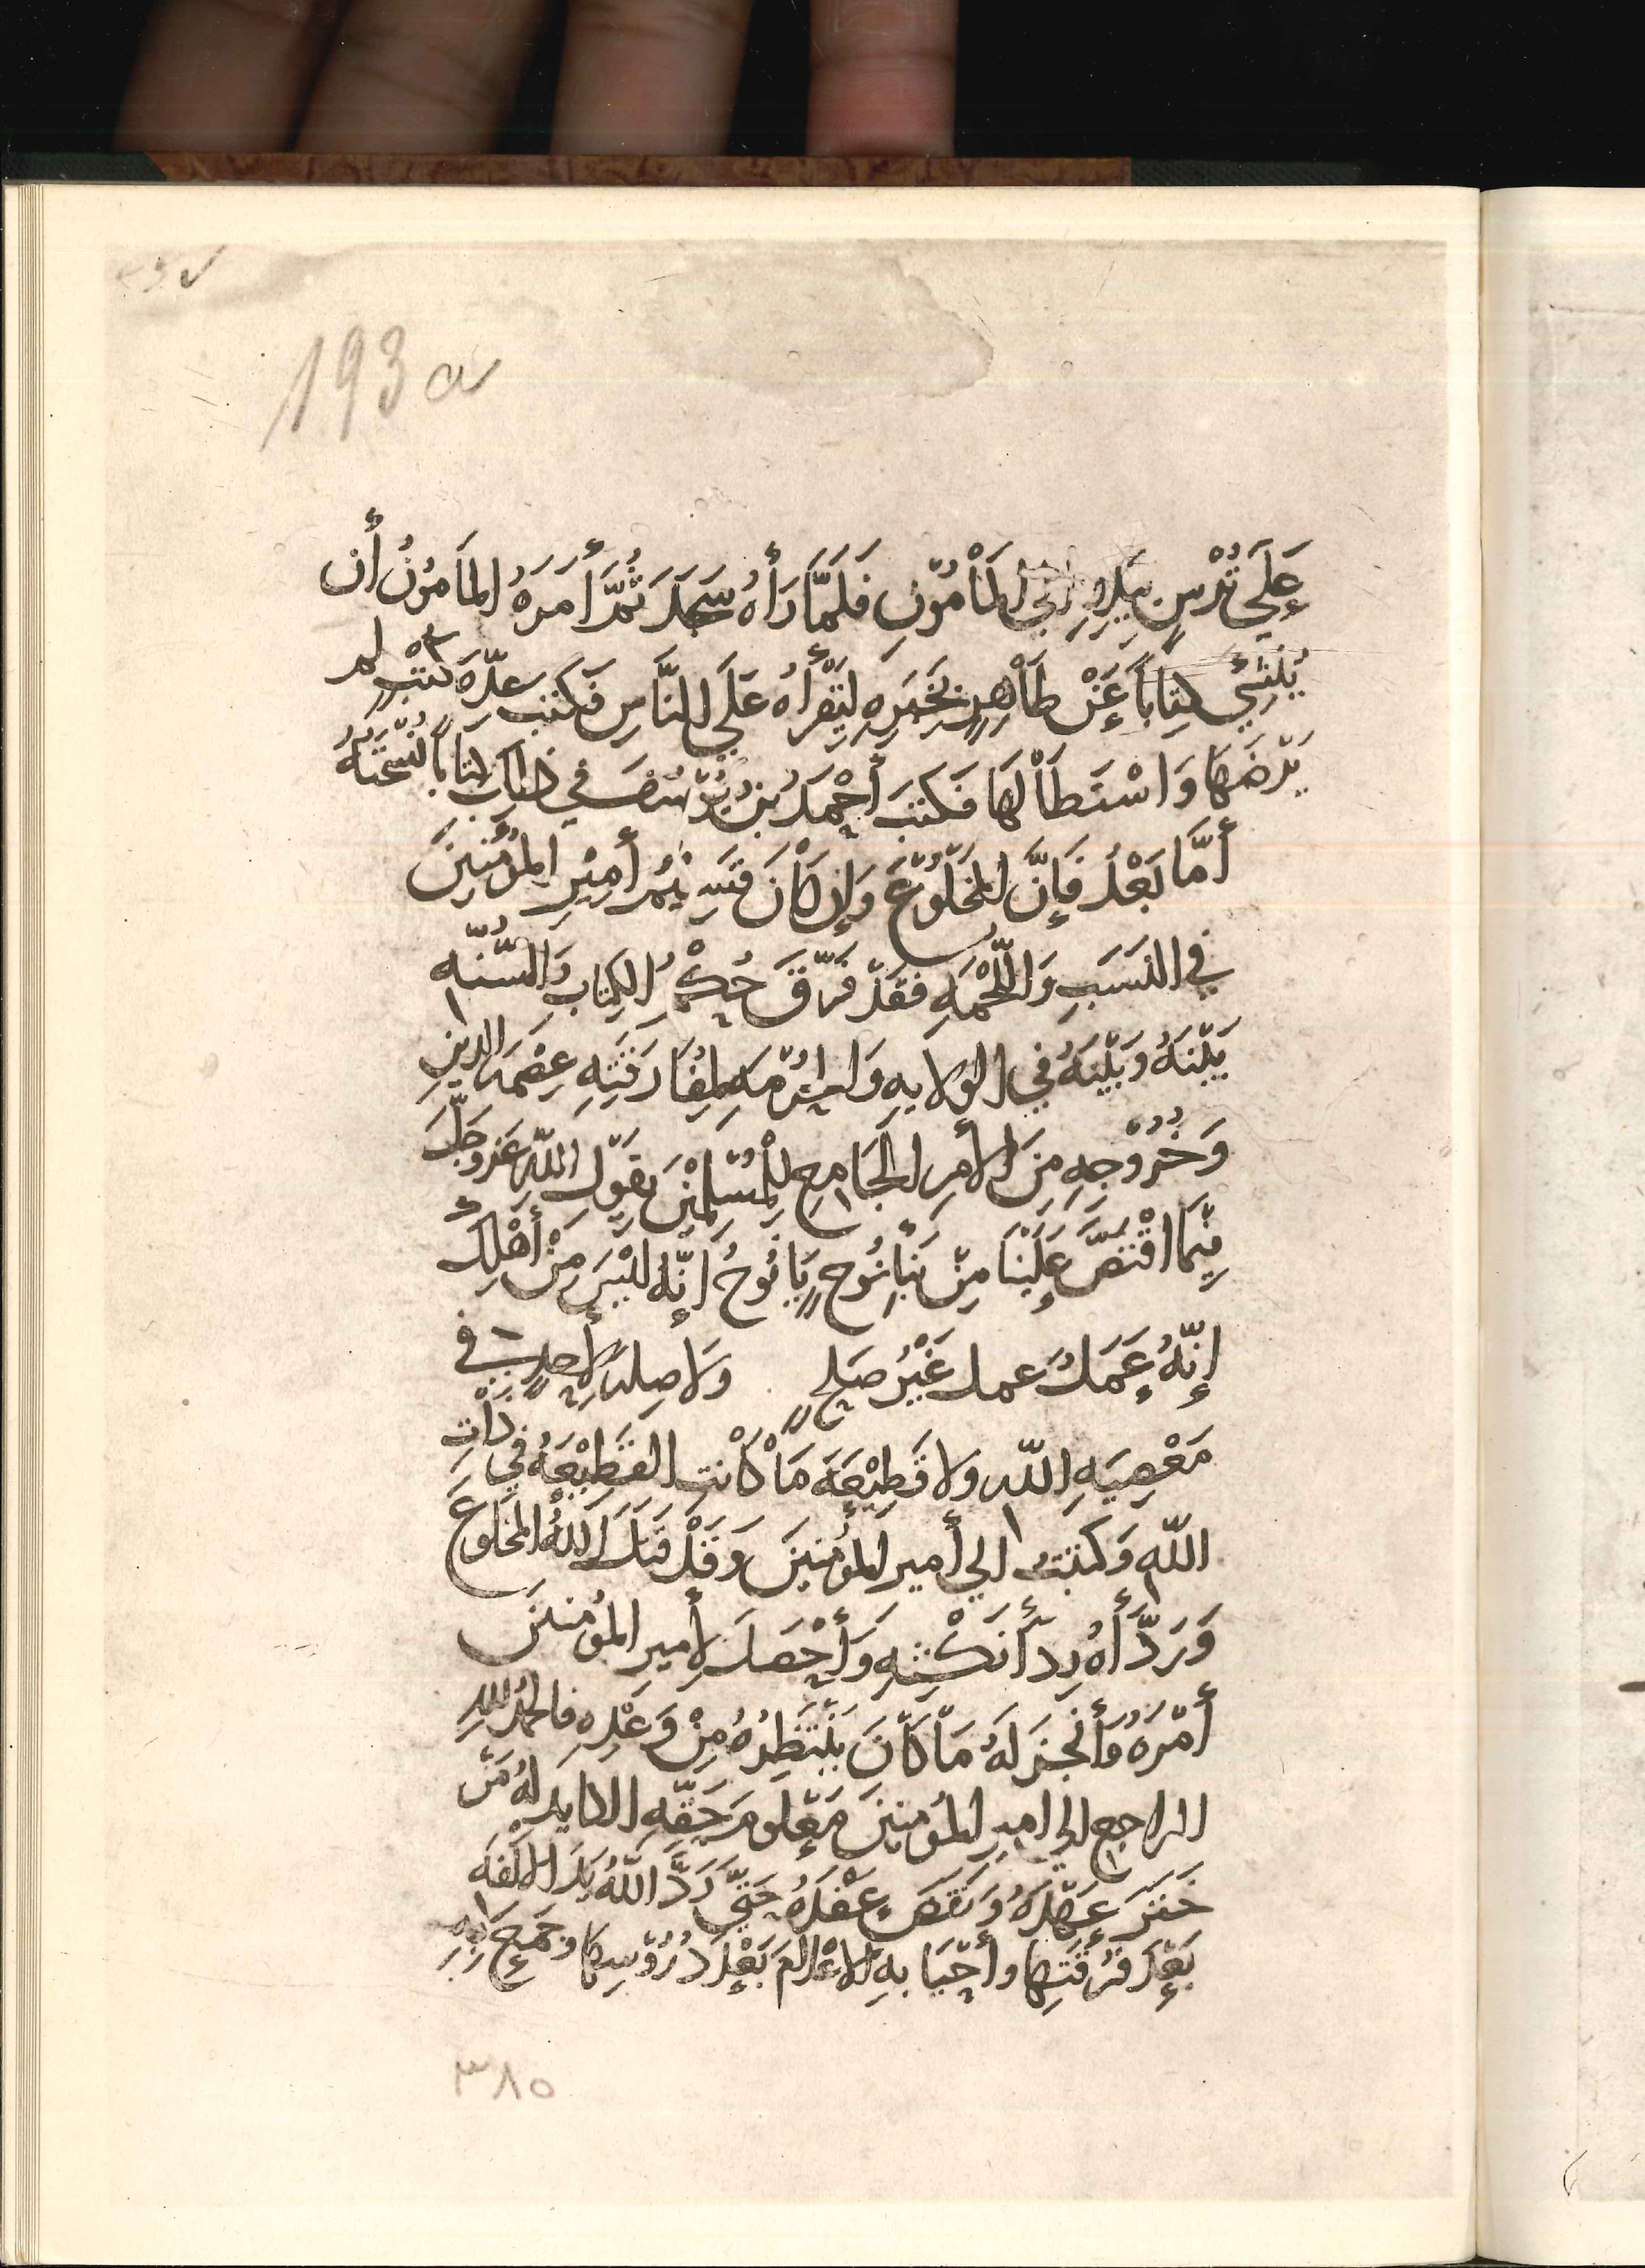 193 a
عَلَي تُرْسٍ بِيَدِهِ إِلَي المَأْمُوْنِ فَلَمَّا رَأَهُ سَجَدَ ثُمَّ أَمَرَهُ المَامُوْنُ أَن
يُنْشِيَ كِتَاباً عَنْ طَاْهِرٍ بِخَبَرِهِ لِيَقْرَأَهُ عَلَي النَّاسِ فَكَتَبَ عِدَّةَ كُتُبٍ لم
يَرْضَهَا وَاسْتَطَاْلَهَا فَكَتَبَ أَحْمَدُ بْنُ يُوْسُفَ في ذلكَ كِتَاباً نُسْخَتُهُ
أَمَّا بَعْدُ فَإِنَّ المَخْلُوْعَ وَإِن كَاْنَ قَسِيْمَ أَمِيْرِ المُؤْمِنِيْنَ
في النَسَبِ وَاللُّحْمَهِ فَقَدْ فَرَّقَ حُكْمُ الكِتَابِ وَالسُّنّه
بَيْنَهُ وَبَيْنَهُ في الوِلايهِ وَالحُرْمَهِ لِمُفَارَقَتِهِ عِصْمَهَ الدِيْنِ
وَخُرُوْجِهِ مِنَ الأَمرِ الجَامِعِ لِلْمُسْلِمِيْنَ يَقُوْلُ اللّهُ عَزّ وَجَلَّ
فِيْمَا اقْتَصَّ عَلَيْنَا مِنْ نَبَأِ نُوْحٍ يَا نُوْحُ إِنَّهُ لَيْسَ مِنْ أَهْلِكَ
إِنّهُ عَمَلٌ عمل غَيْرُ صَلِحٍ وَلَا صِلهَ لِأَحَدٍ في
مَعْصِيَهِ اللّه ولا قَطِيْعَهَ مَاْ كَاْنَتِ القَطِيْعَهُ في ذَاْتِ
اللّهِ وَكَتَبْتُ الي أَمير المُؤْمِنِينَ وَقَدْ قَتَلَ اللّهُ المَخْلُوعَ
وَرَدَّأَهُ رِدَأَ نَكْثِهِ وَأَحْصَدَ لِأَمِيرِ المُؤْمِنينَ
أَمْرَهُ وَأَنْجَزَ لَهُ مَاْ كَاْنَ يَنْتَظِرُهُ مِنْ وَعْدِهِ فالحَمْدُ لِلهِ
الراجع الي امير المُؤْمنينَ مَعْلومَ حَقّهِ الكايدِ لهُ مَنْ
خَتَرَ عَهْدَهُ وَنَقَضَ عَقْدَهُ حَتّي رَدَّ اللّهُ بِهَ الأُلفَهَ
بَعْدَ فُرْقَتِها وأَحْيَا بِهِ الأَعْلَامَ بَعْدَ دُرُوْسِهَا وجَمَعَ بِهِ
٣٨٥